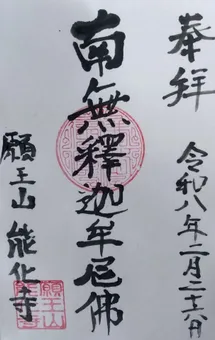 奉拝
令和八年二月二十六日
南無釋迦牟尼佛
願王山 能化寺
願王山
能化寺